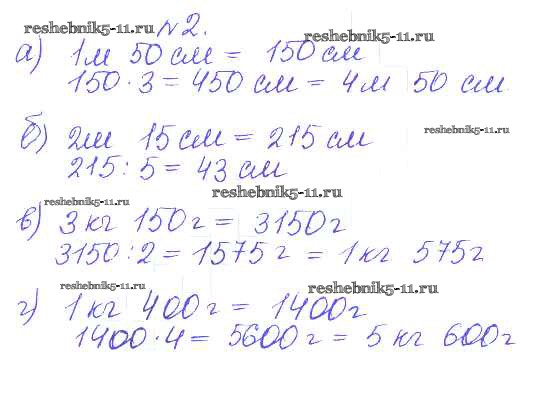 reshebnik5-11.ru №2.
reshebnik5-11.ru
а) 1м 50 см = 150 см
150 · 3 = 450 см = 4 м 50 см
б) 2м 15 см = 215 см
reshebnik5-11.ru
215 : 5 = 43 см
reshebnik5-11.ru
reshebnik5-11.ru
в) 3 кг 150 г = 3150 г
3150 : 2 = 1575 г = 1 кг 575 г
reshebnik5-11.ru
reshebnik5-11.ru
г) 1 кг 400 г = 1400 г
1400 · 4 = 5600 г = 5 кг 600 г